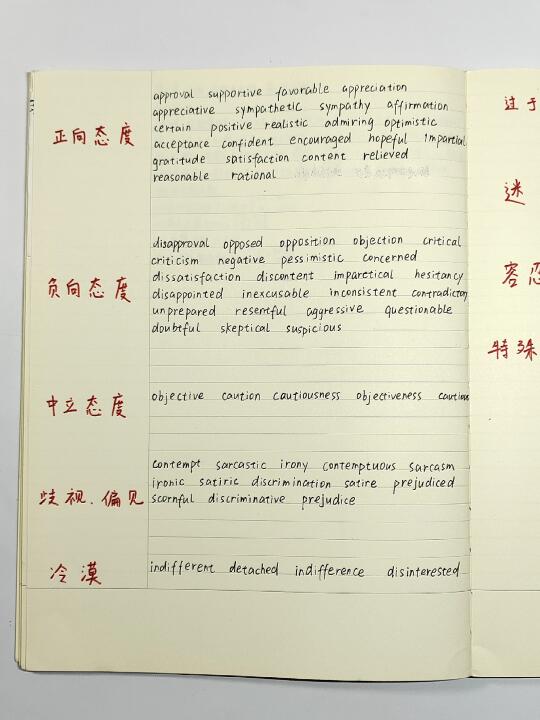 正向态度
approval supportive favorable appreciation
appreciative sympathetic sympathy affirmation
certain positive realistic admiring optimistic
acceptance confident encouraged hopeful impartial
gratitude satisfaction content relieved
reasonable rational
负向态度
disapproval opposed opposition objection critical
criticism negative pessimistic concerned
dissatisfaction discontent imparetical hesitancy
disappointed inexcusable inconsistent contradictory
unprepared resentful aggressive questionable
doubtful skeptical suspicious
中立态度
objective caution cautiousness objectiveness cautious
歧视、偏见
contempt sarcastic irony contemptuous sarcasm
ironic satiric discrimination satire prejudiced
scornful discriminative prejudice
冷漠
indifferent detached indifference disinterested
过于
迷
容忍
特殊